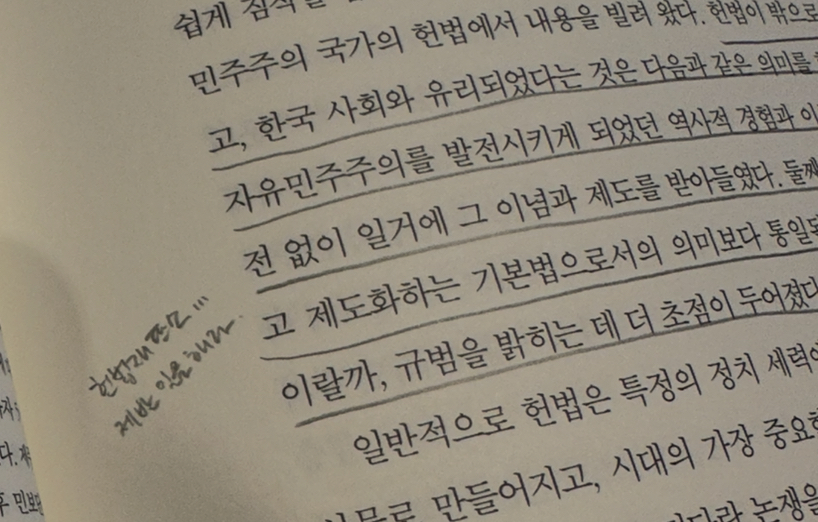 쉽게 짐작할
민주주의 국가의 헌법에서 내용을 빌려 왔다. 헌법이 밖으로
고, 한국 사회와 유리되었다는 것은 다음과 같은 의미를
자유민주주의를 발전시키게 되었던 역사적 경험과 이
전 없이 일거에 그 이념과 제도를 받아들였다. 둘째
고 제도화하는 기본법으로서의 의미보다 통일된
이랄까, 규범을 밝히는 데 더 초점이 두어졌다
일반적으로 헌법은 특정의 정치 세력에
만들어지고, 시대의 가장 중요한
논쟁을
헌법재판소 …
제발 일을 해라.